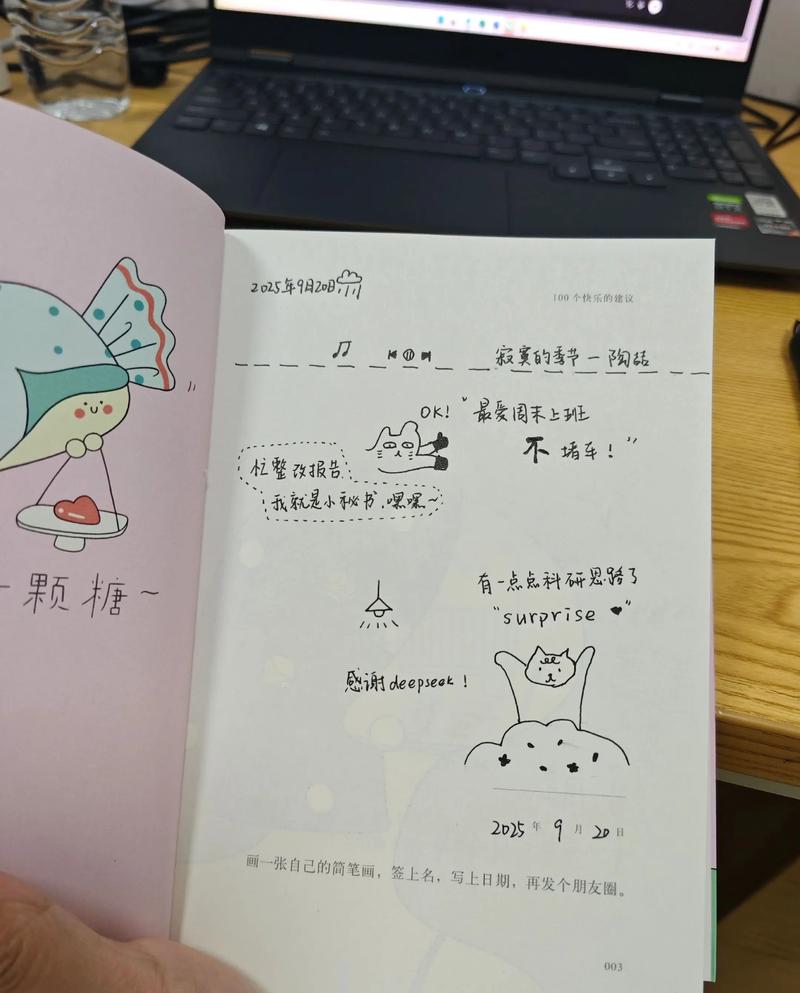 一颗糖~
2025年9月20日
100个快乐的建议
寂寞的季节-陶喆
OK! "最爱周末上班
不堵车!"
忙整改报告
我就是小秘书.嘿嘿~
有一点点科研思路了
"surprise ❤"
感谢deepseek!
2025年9月20日
画一张自己的简笔画,签上名,写上日期,再发个朋友圈。
003